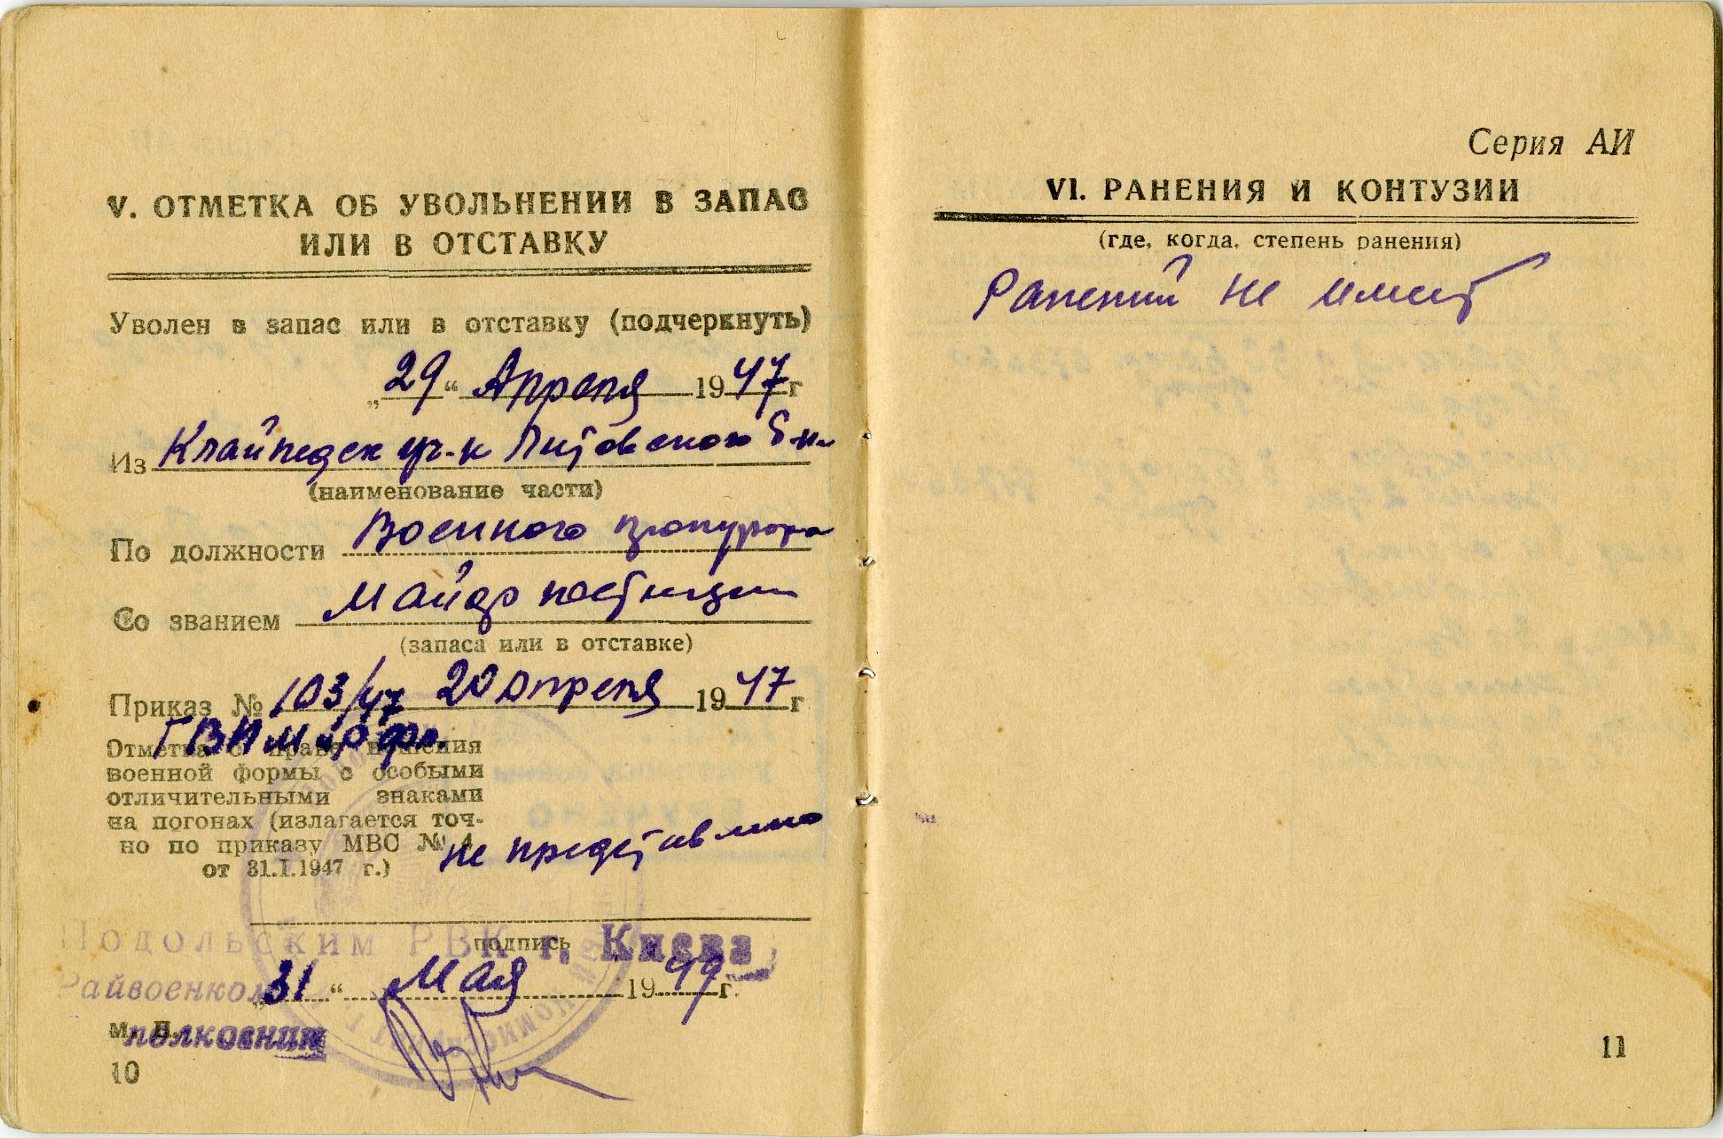 V. ОТМЕТКА ОБ УВОЛЬНЕНИИ В ЗАПАС
ИЛИ В ОТСТАВКУ
Уволен в запас или в отставку (подчеркнуть)
„29“ Апреля 1947 г
Из Клайпедск уч-к Литовского
(наименование части)
По должности Военного прокурора
Со званием Майор юстиции
(запаса или в отставке)
Приказ № 103/47 20 апреля 1947 г
Отметка о праве ношения
военной формы с особыми
отличительными знаками
на погонах (излагается точ-
но по приказу МВС № 4
от 31.I.1947 г.)
не представлено
подпись
Подольским РВК г. Киева
Райвоенком
„31“ Мая 1949 г.
м. п.
полковник
10
Серия АИ
VI. РАНЕНИЯ И КОНТУЗИИ
(где, когда, степень ранения)
Ранений не имеет
11